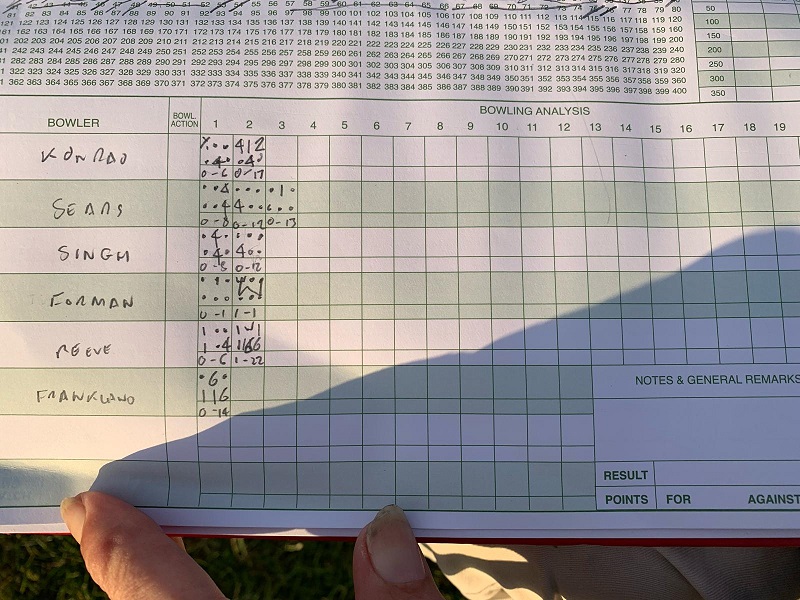 81 82 83 84 85 86 87 88 89 90 91 92 93 94 95 96 97 98 99 100 101 102 103 104 105 106 107 108 109 110 111 112 113 114 115 116 117 118 119 120
50
121 122 123 124 125 126 127 128 129 130 131 132 133 134 135 136 137 138 139 140 141 142 143 144 145 146 147 148 149 150 151 152 153 154 155 156 157 158 159 160
100
161 162 163 164 165 166 167 168 169 170 171 172 173 174 175 176 177 178 179 180 181 182 183 184 185 186 187 188 189 190 191 192 193 194 195 196 197 198 199 200
150
201 202 203 204 205 206 207 208 209 210 211 212 213 214 215 216 217 218 219 220 221 222 223 224 225 226 227 228 229 230 231 232 233 234 235 236 237 238 239 240
200
241 242 243 244 245 246 247 248 249 250 251 252 253 254 255 256 257 258 259 260 261 262 263 264 265 266 267 268 269 270 271 272 273 274 275 276 277 278 279 280
250
281 282 283 284 285 286 287 288 289 290 291 292 293 294 295 296 297 298 299 300 301 302 303 304 305 306 307 308 309 310 311 312 313 314 315 316 317 318 319 320
300
321 322 323 324 325 326 327 328 329 330 331 332 333 334 335 336 337 338 339 340 341 342 343 344 345 346 347 348 349 350 351 352 353 354 355 356 357 358 359 360
361 362 363 364 365 366 367 368 369 370 371 372 373 374 375 376 377 378 379 380 381 382 383 384 385 386 387 388 389 390 391 392 393 394 395 396 397 398 399 400
350
BOWLING ANALYSIS
BOWLER BOWL ACTION 1 2 3 4 5 6 7 8 9 10 11 12 13 14 15 16 17 18 19
KONRAD
412
0-6 0/17
SEARS
0-8 0-12 0-13
SINGH
0-8 0-12
FORMAN
0-1 1-1
REEVE
0-6 1-22
FRANKLAND
·6·
116
0-14
NOTES & GENERAL REMARKS
RESULT
POINTS FOR AGAINST